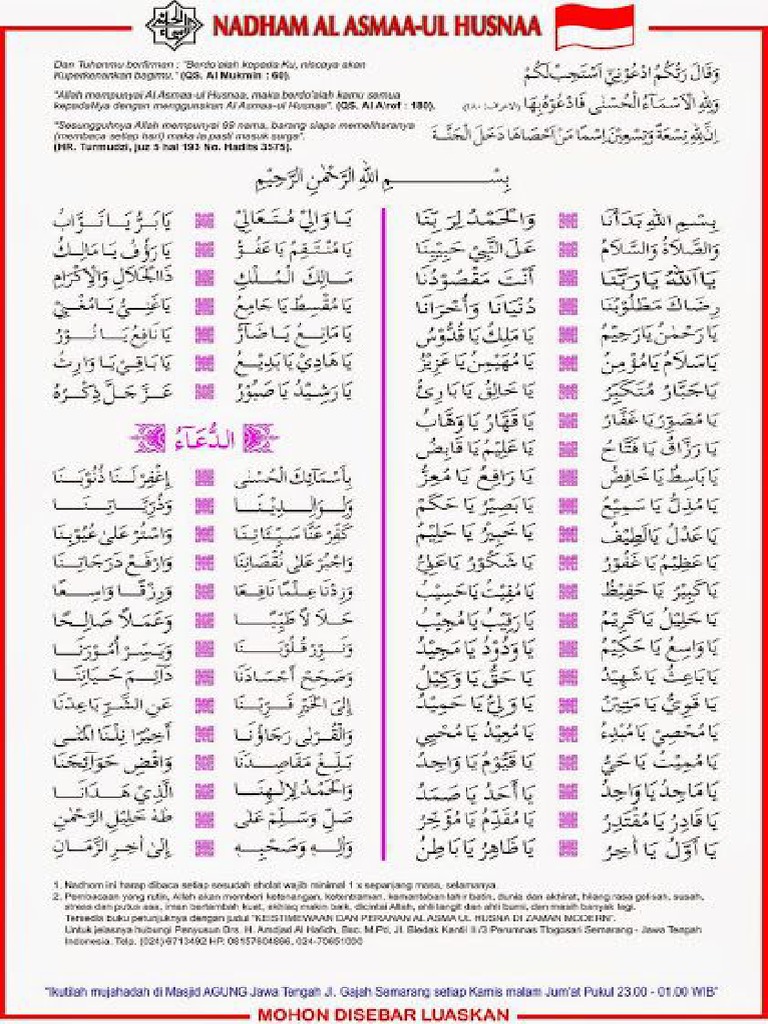 NADHAM AL ASMAA-UL HUSNAA
Dan Tuhanmu berfirman : "Berdo'alah kepada Ku, niscaya akan
Kuperkenankan bagimu." (QS. Al Mukmin : 60).
"Allah mempunyai Al Asmaa-ul Husnaa, maka berdo'alah kamu semua
kepadaNya dengan menggunakan Al Asmaa-ul Husnaa". (QS. Al A'rof : 180).
"Sesungguhnya Allah mempunyai 99 nama, barang siapa memeliharanya
(membaca setiap hari) maka ia pasti masuk surga".
(HR. Turmudzi, juz 5 hal 193 No. Hadits 3575).
وَقَالَ رَبُّكُمُ ادْعُوْنِيْ أَسْتَجِبْ لَكُمْ
وَلِلّٰهِ الْاَسْمَاءُ الْحُسْنٰى فَادْعُوْهُ بِهَا
اِنَّ لِلّٰهِ تِسْعَةً وَتِسْعِيْنَ اِسْمًا مَنْ اَحْصَاهَا دَخَلَ الْجَنَّةَ
بِسْمِ اللهِ الرَّحْمٰنِ الرَّحِيْمِ
بِسْمِ اللهِ بَدَأْنَا وَالْحَمْدُ لِرَبِّنَا
وَالصَّلَاةُ وَالسَّلَامُ عَلَى النَّبِيِّ حَبِيْبِنَا
يَا اَللهُ يَا رَبَّنَا أَنْتَ مَقْصُوْدُنَا
رِضَاكَ مَطْلُوْبُنَا دُنْيَانَا وَأُخْرَانَا
يَا رَحْمٰنُ يَا رَحِيْمُ يَا مَلِكُ يَا قُدُّوْسُ
يَا سَلَامُ يَا مُؤْمِنُ يَا مُهَيْمِنُ يَا عَزِيْزُ
يَا جَبَّارُ مُتَكَبِّرُ يَا خَالِقُ يَا بَارِئُ
يَا مُصَوِّرُ يَا غَفَّارُ يَا قَهَّارُ يَا وَهَّابُ
يَا رَزَّاقُ يَا فَتَّاحُ يَا عَلِيْمُ يَا قَابِضُ
يَا بَاسِطُ يَا خَافِضُ يَا رَافِعُ يَا مُعِزُّ
يَا مُذِلُّ يَا سَمِيْعُ يَا بَصِيْرُ يَا حَكَمُ
يَا عَدْلُ يَا لَطِيْفُ يَا خَبِيْرُ يَا حَلِيْمُ
يَا عَظِيْمُ يَا غَفُوْرُ يَا شَكُوْرُ يَا عَلِيُّ
يَا كَبِيْرُ يَا حَفِيْظُ يَا مُقِيْتُ يَا حَسِيْبُ
يَا جَلِيْلُ يَا كَرِيْمُ يَا رَقِيْبُ يَا مُجِيْبُ
يَا وَاسِعُ يَا حَكِيْمُ يَا وَدُوْدُ يَا مَجِيْدُ
يَا بَاعِثُ يَا شَهِيْدُ يَا حَقُّ يَا وَكِيْلُ
يَا قَوِيُّ يَا مَتِيْنُ يَا وَلِيُّ يَا حَمِيْدُ
يَا مُحْصِيْ يَا مُبْدِءُ يَا مُعِيْدُ يَا مُحْيِيْ
يَا مُمِيْتُ يَا حَيُّ يَا قَيُّوْمُ يَا وَاجِدُ
يَا مَاجِدُ يَا وَاحِدُ يَا أَحَدُ يَا صَمَدُ
يَا قَادِرُ يَا مُقْتَدِرُ يَا مُقَدِّمُ يَا مُؤَخِّرُ
يَا أَوَّلُ يَا أٰخِرُ يَا ظَاهِرُ يَا بَاطِنُ
يَا وَالِيْ مُتَعَالِيْ يَا بَرُّ يَا تَوَّابُ
يَا مُنْتَقِمُ يَا عَفُوُّ يَا رَؤُفُ يَا مَالِكُ
مَالِكَ الْمُلْكِ ذَا الْجَلَالِ وَالْاِكْرَامِ
يَا مُقْسِطُ يَا جَامِعُ يَا غَنِيُّ يَا مُغْنِيْ
يَا مَانِعُ يَا ضَآرُّ يَا نَافِعُ يَا نُوْرُ
يَا هَادِيْ يَا بَدِيْعُ يَا بَاقِيْ يَا وَارِثُ
يَا رَشِيْدُ يَا صَبُوْرُ عَزَّ جَلَّ ذِكْرُهُ
الدُّعَآءُ
بِأَسْمَائِكَ الْحُسْنٰى إِغْفِرْ لَنَا ذُنُوْبَنَا
وَلِوَالِدِيْنَا وَذُرِّيَّاتِنَا
كَفِّرْ عَنَّا سَيِّئَاتِنَا وَاسْتُرْ عَلٰى عُيُوْبِنَا
وَاجْبُرْ عَلٰى نُقْصَانِنَا وَارْفَعْ دَرَجَاتِنَا
وَزِدْنَا عِلْمًا نَافِعًا وَرِزْقًا وَاسِعًا
حَلَالًا طَيِّبًا وَعَمَلًا صَالِحًا
وَنَوِّرْ قُلُوْبَنَا وَيَسِّرْ أُمُوْرَنَا
وَصَحِّحْ أَجْسَادَنَا دَآئِمَ حَيَاتِنَا
إِلَى الْخَيْرِ قَرِّبْنَا عَنِ الشَّرِّ بَاعِدْنَا
وَالْقُرْبٰى رَجَاؤُنَا أَخِيْرًا نِلْنَا الْمُنٰى
بَلِّغْ مَقَاصِدَنَا وَاقْضِ حَوَآئِجَنَا
وَالْحَمْدُ لِإِلٰهِنَا الَّذِيْ هَدَانَا
صَلِّ وَسَلِّمْ عَلٰى طٰهٰ خَلِيْلِ الرَّحْمٰنِ
وَاٰلِهِ وَصَحْبِهِ إِلٰى اٰخِرِ الزَّمَانِ
1. Nadhom ini harap dibaca setiap sesudah sholat wajib minimal 1 x sepanjang masa, selamanya.
2. Pembacaan yang rutin, Allah akan memberi ketenangan, ketentraman, kemantaban lahir batin, dunia dan akhirat, hilang rasa gelisah, susah,
stress dan putus asa, iman bertambah kuat, akhlaq makin baik, dicintai Allah, ahli langit dan ahli bumi, dan masih banyak lagi.
Tersedia buku petunjuknya dengan judul "KEISTIMEWAAN DAN PERANAN AL ASMA UL HUSNA DI ZAMAN MODERN".
Untuk jelasnya hubungi Penyusun Drs. H. Amdjad Al Hafidh, Bsc. M.Pd, Jl. Bledak Kantil II /3 Perumnas Tlogosari Semarang - Jawa Tengah
Indonesia. Telp. (024) 6713492 HP. 08157604866, 024-70651090
"Ikutilah mujahadah di Masjid AGUNG Jawa Tengah Jl. Gajah Semarang setiap Kamis malam Jum'at Pukul 23.00 - 01.00 WIB"
MOHON DISEBAR LUASKAN